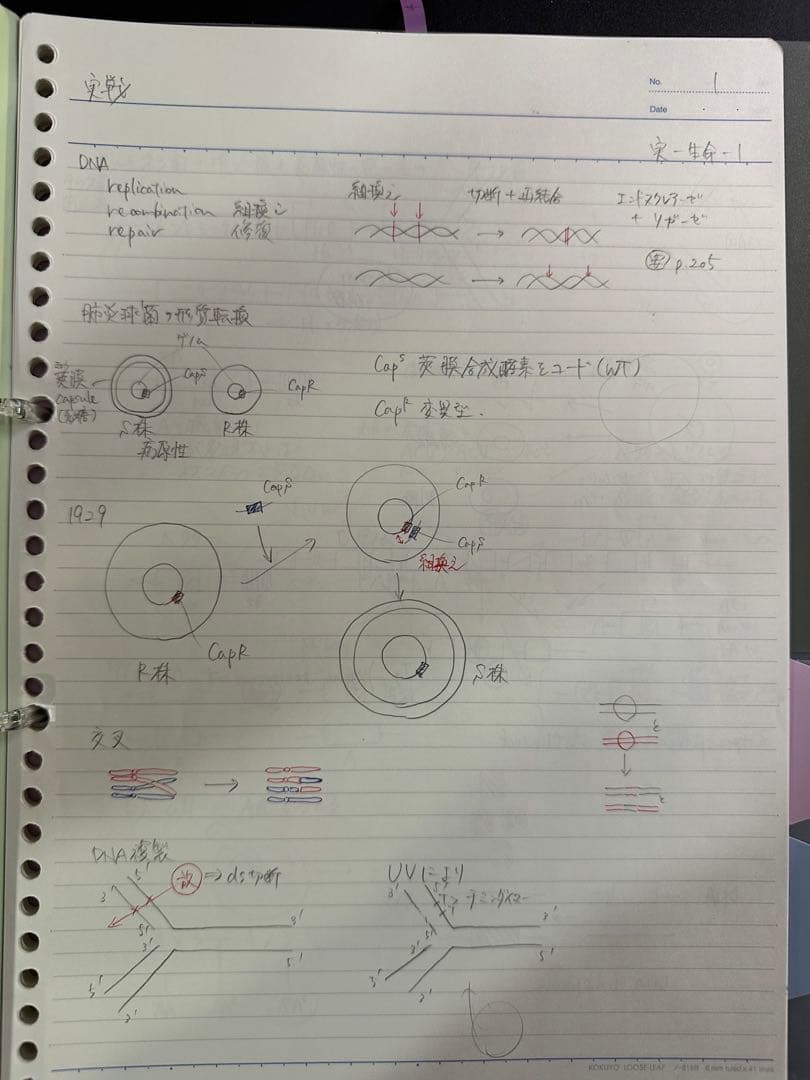 実戦
No. 1
Date
実-生命-1
DNA
replication
recombination 組換え
repair 修復
組換え 切断+再結合 エンドヌクレアーゼ
+リガーゼ
p.205
肺炎球菌の形質転換
ゲノム
莢膜 CapS CapR
capsule
(多糖)
S株 R株
病原性
CapS 莢膜合成酵素をコード(WT)
CapR 変異型.
1929
CapS
CapR
CapS
組換え
CapR
R株
S株
交叉
DNA複製
放 ⇒ds切断
3' 5'
5' 3'
3' 5'
5'
3'
UVにより
チミンダイマー
3' 5'
T
T
5' 3'
3' 5'
3'
3'
KOKUYO LOOSE-LEAF ノ-816B 6 mm ruled x 41 lines